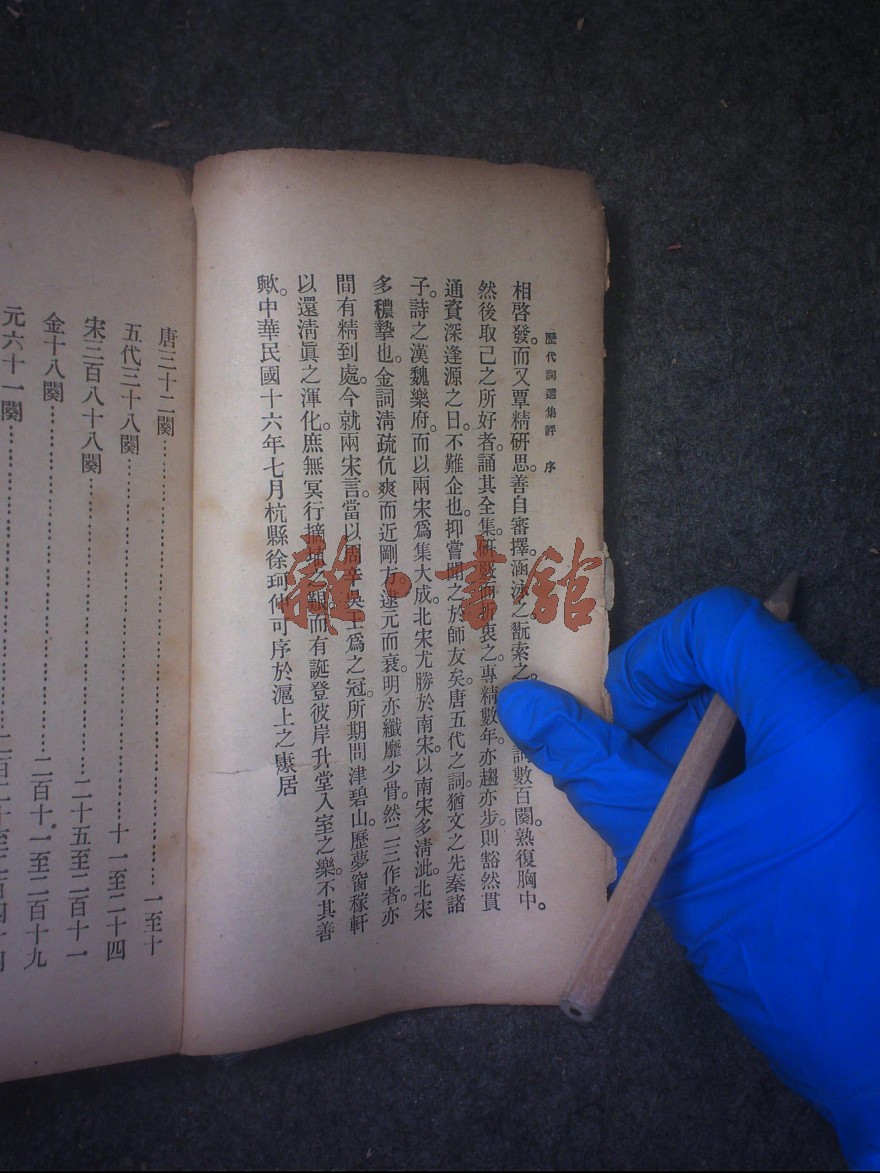 歷代詞選集評 序
相啓發。而又覃精研思。善自審擇。涵泳之。翫索之。詞數百闋。熟復胸中。
然後取己之所好者。誦其全集。研般而折衷之。專精數年。亦趨亦步。則豁然貫
通。資深逢源之日。不難企也。抑嘗聞之於師友矣。唐五代之詞。猶文之先秦諸
子。詩之漢魏樂府。而以兩宋爲集大成。北宋尤勝於南宋。以南宋多清泚。北宋
多穠摯也。金詞清疏伉爽而近剛方。逮元而衰。明亦纖靡少骨。然一二作者。亦
間有精到處。今就兩宋言。當以周辛吳王爲之冠。所期問津碧山。歷夢窗稼軒
以還清眞之渾化。庶無冥行擿埴之艱。而有誕登彼岸升堂入室之樂。不其善
歟。中華民國十六年七月杭縣徐珂仲可序於滬上之康居
唐三十二闋 一至十
五代三十八闋 十一至二十四
宋三百八十八闋 二十五至二百十一
金十八闋 二百十一至二百十九
元六十一闋
雜·書館